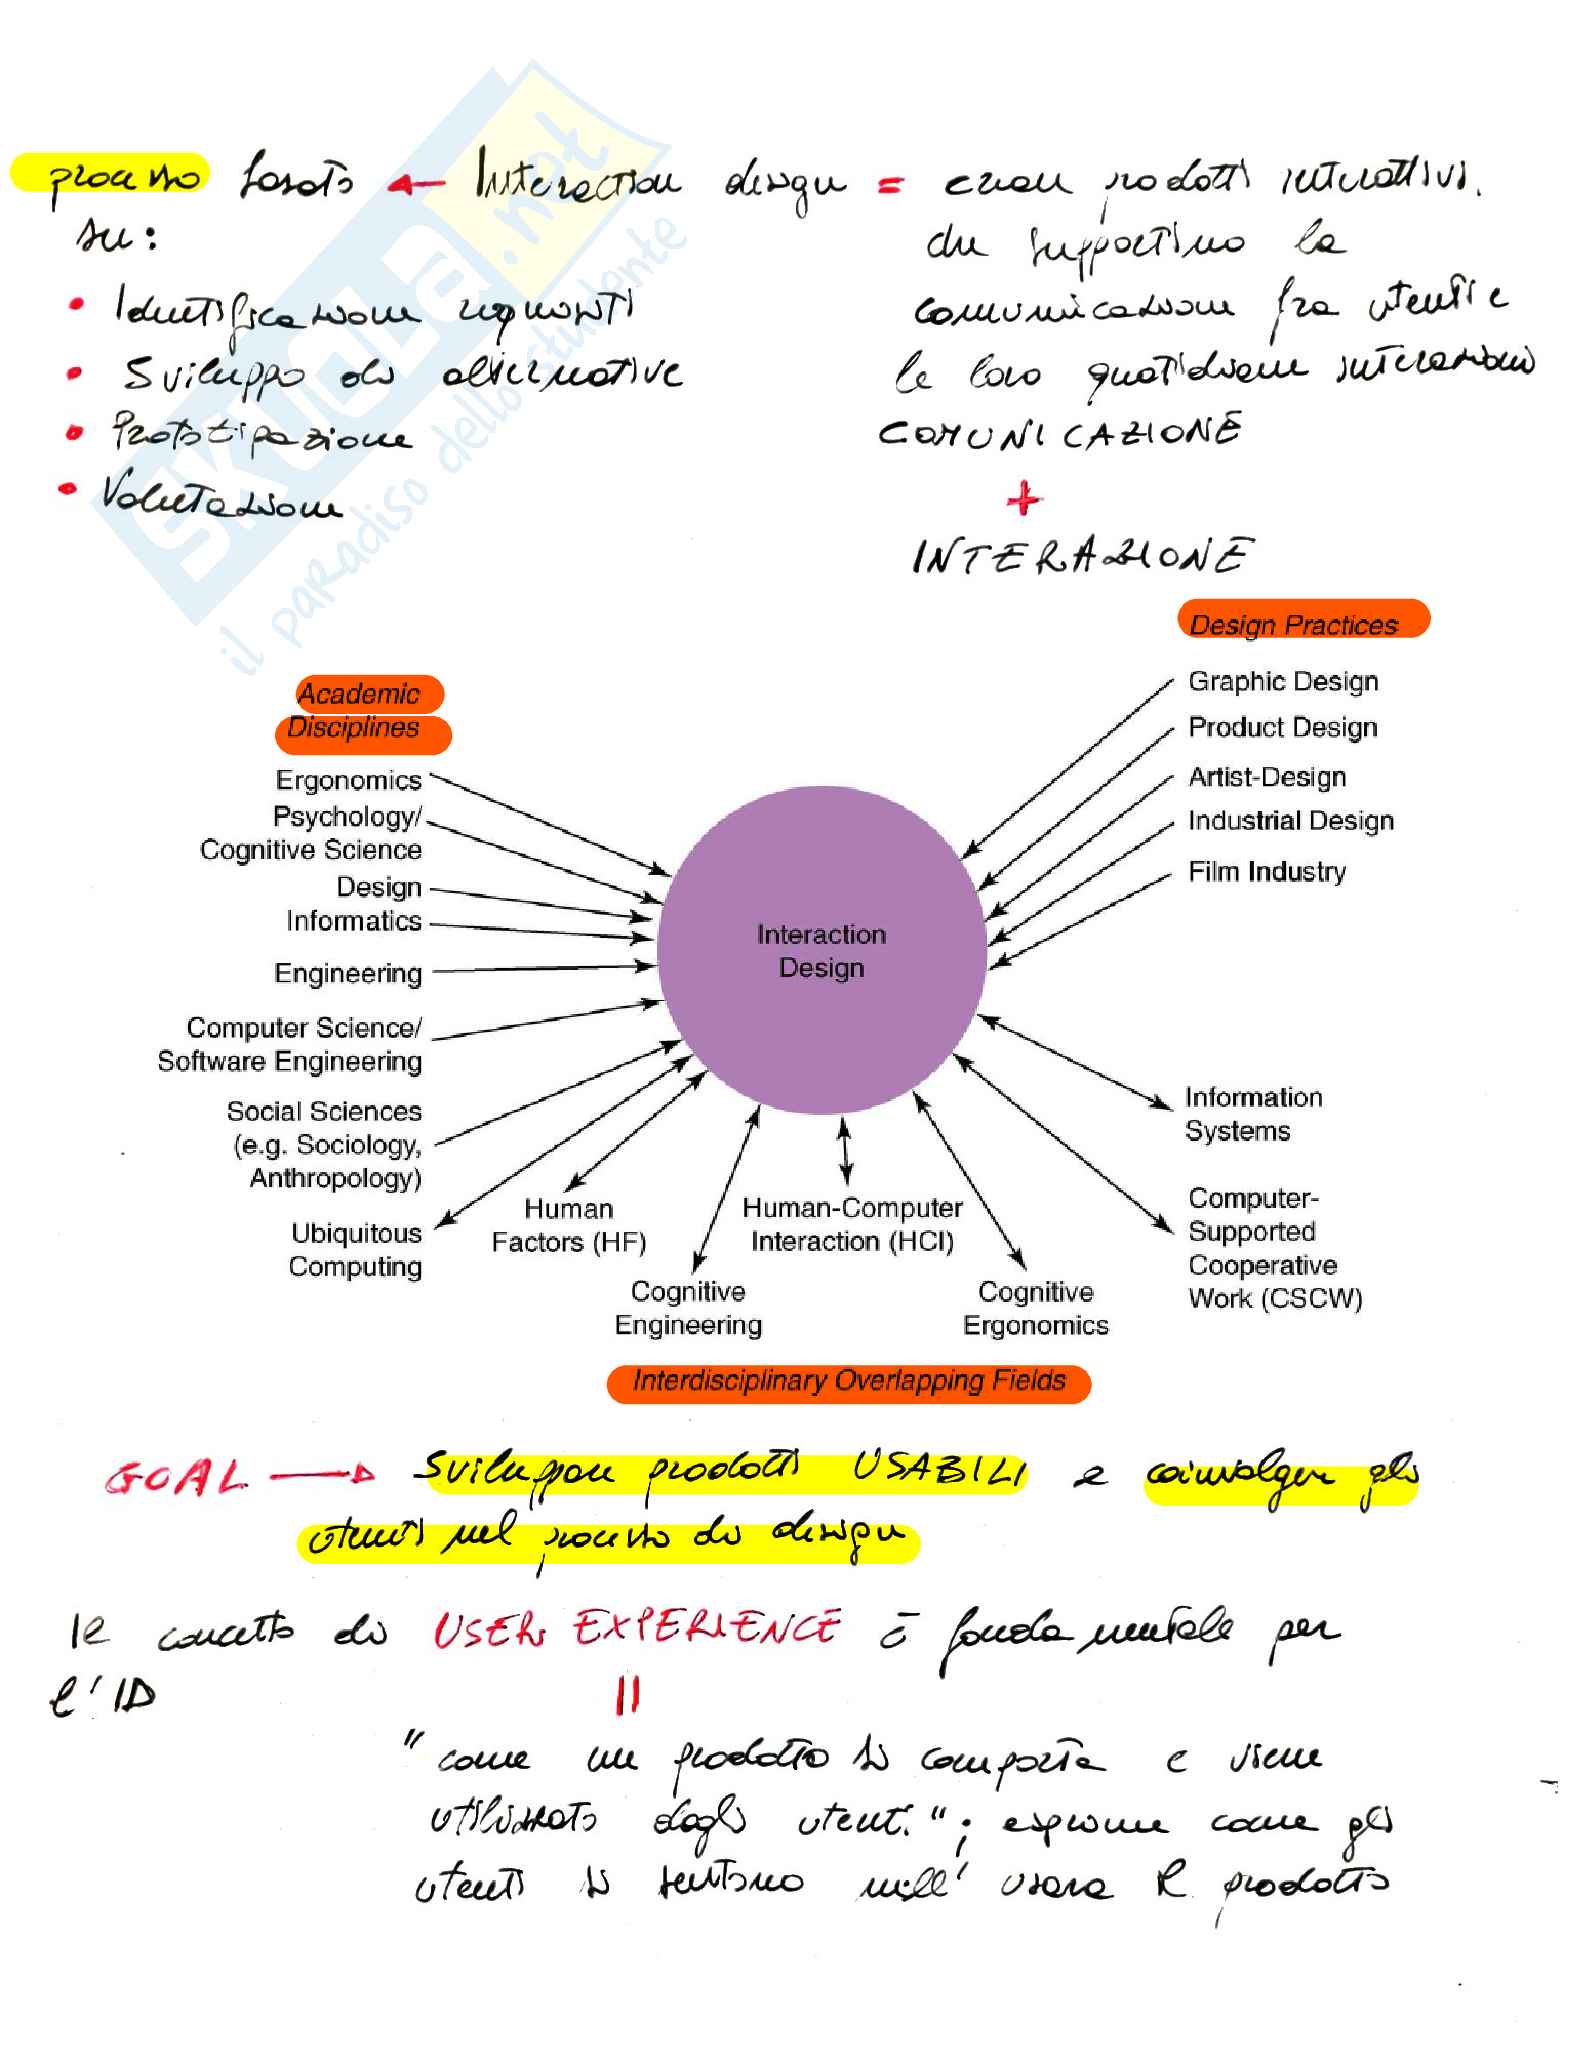 processo basato ← Interaction design = creare prodotti interattivi
su:
che supportino la
• Identificazione requisiti
comunicazione fra utenti e
• Sviluppo di alternative
le loro quotidiane interazioni
• Prototipazione
COMUNICAZIONE
• Valutazione
+
INTERAZIONE
SKUOLA.net
il paradiso dello studente
Design Practices
Graphic Design
Product Design
Artist-Design
Industrial Design
Film Industry
Academic
Disciplines
Ergonomics
Psychology/
Cognitive Science
Design
Informatics
Engineering
Computer Science/
Software Engineering
Social Sciences
(e.g. Sociology,
Anthropology)
Ubiquitous
Computing
Interaction
Design
Human
Factors (HF)
Cognitive
Engineering
Human-Computer
Interaction (HCI)
Cognitive
Ergonomics
Information
Systems
Computer-
Supported
Cooperative
Work (CSCW)
Interdisciplinary Overlapping Fields
GOAL → sviluppare prodotti USABILI e coinvolgere gli
utenti nel processo di design
Il concetto di USER EXPERIENCE è fondamentale per
l'ID
=
"come un prodotto si comporta e viene
utilizzato dagli utenti"; esprime come gli
utenti si sentono nell'usare il prodotto